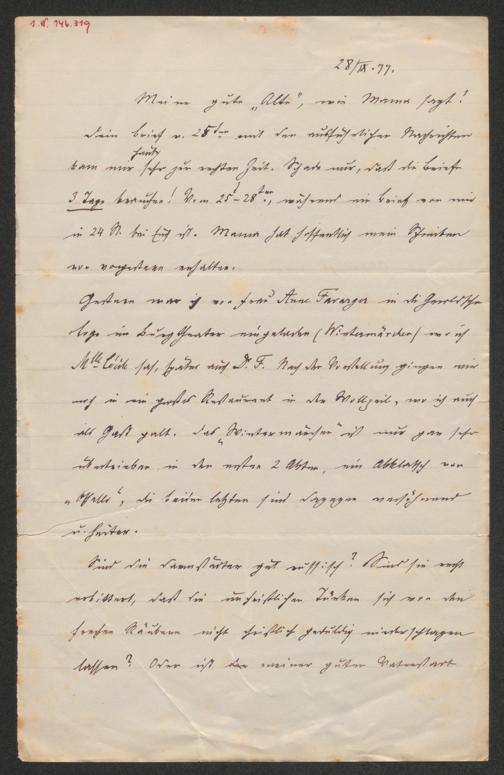 I.N. 146.319
28/IX. 77.
Meine gute „Alte", wie Mama sagt!
Dein Brief v. 25ten mit den ausführlichen Nachrichten
heute
kam mir sehr zur rechten Zeit. Schade nur, daß die Briefe
3 Tage brauchen! Vom 25t - 28ten, während ein Brief von mir
in 24 St. bei Euch ist. Mama hat hoffentlich mein Schreiben
von vorgestern erhalten.
Gestern war ich von Frau Anna in die
loge im Burgtheater eingeladen (Wintermärchen) wo ich
Mlle sah, später auch D. F. Nach der Vorstellung gingen wir
noch in ein großes Restaurant in der Wollzeil, wo ich auch
als Gast galt. Das „Wintermärchen" ist mir gar sehr
übertrieben in den ersten 2 Akten, ein Abklatsch von
„Othello", die beiden letzten sind dagegen versöhnend
u. heiter.
Sind die Darmstädter gut russisch? Sind sie recht
erbittert, daß die unchristlichen Türken sich von den
frechen Räubern nicht christlich geduldig niederschlagen
lassen? Oder ist in meiner guten Vaterstadt